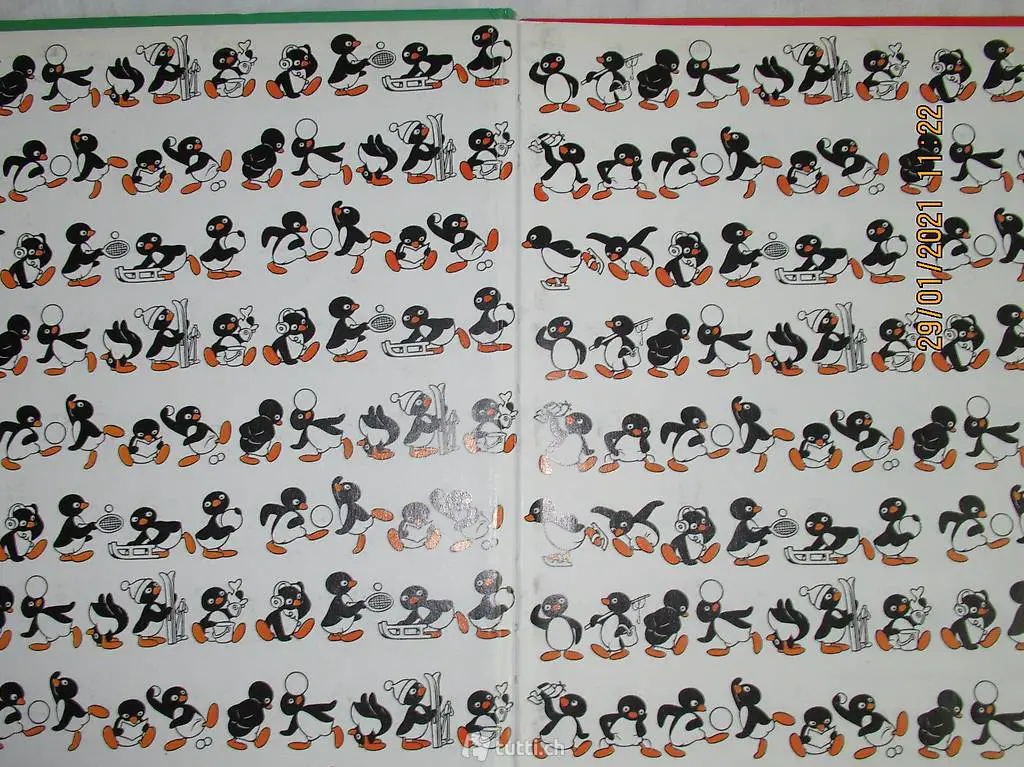 29/01/2021 11:22
tutti.ch